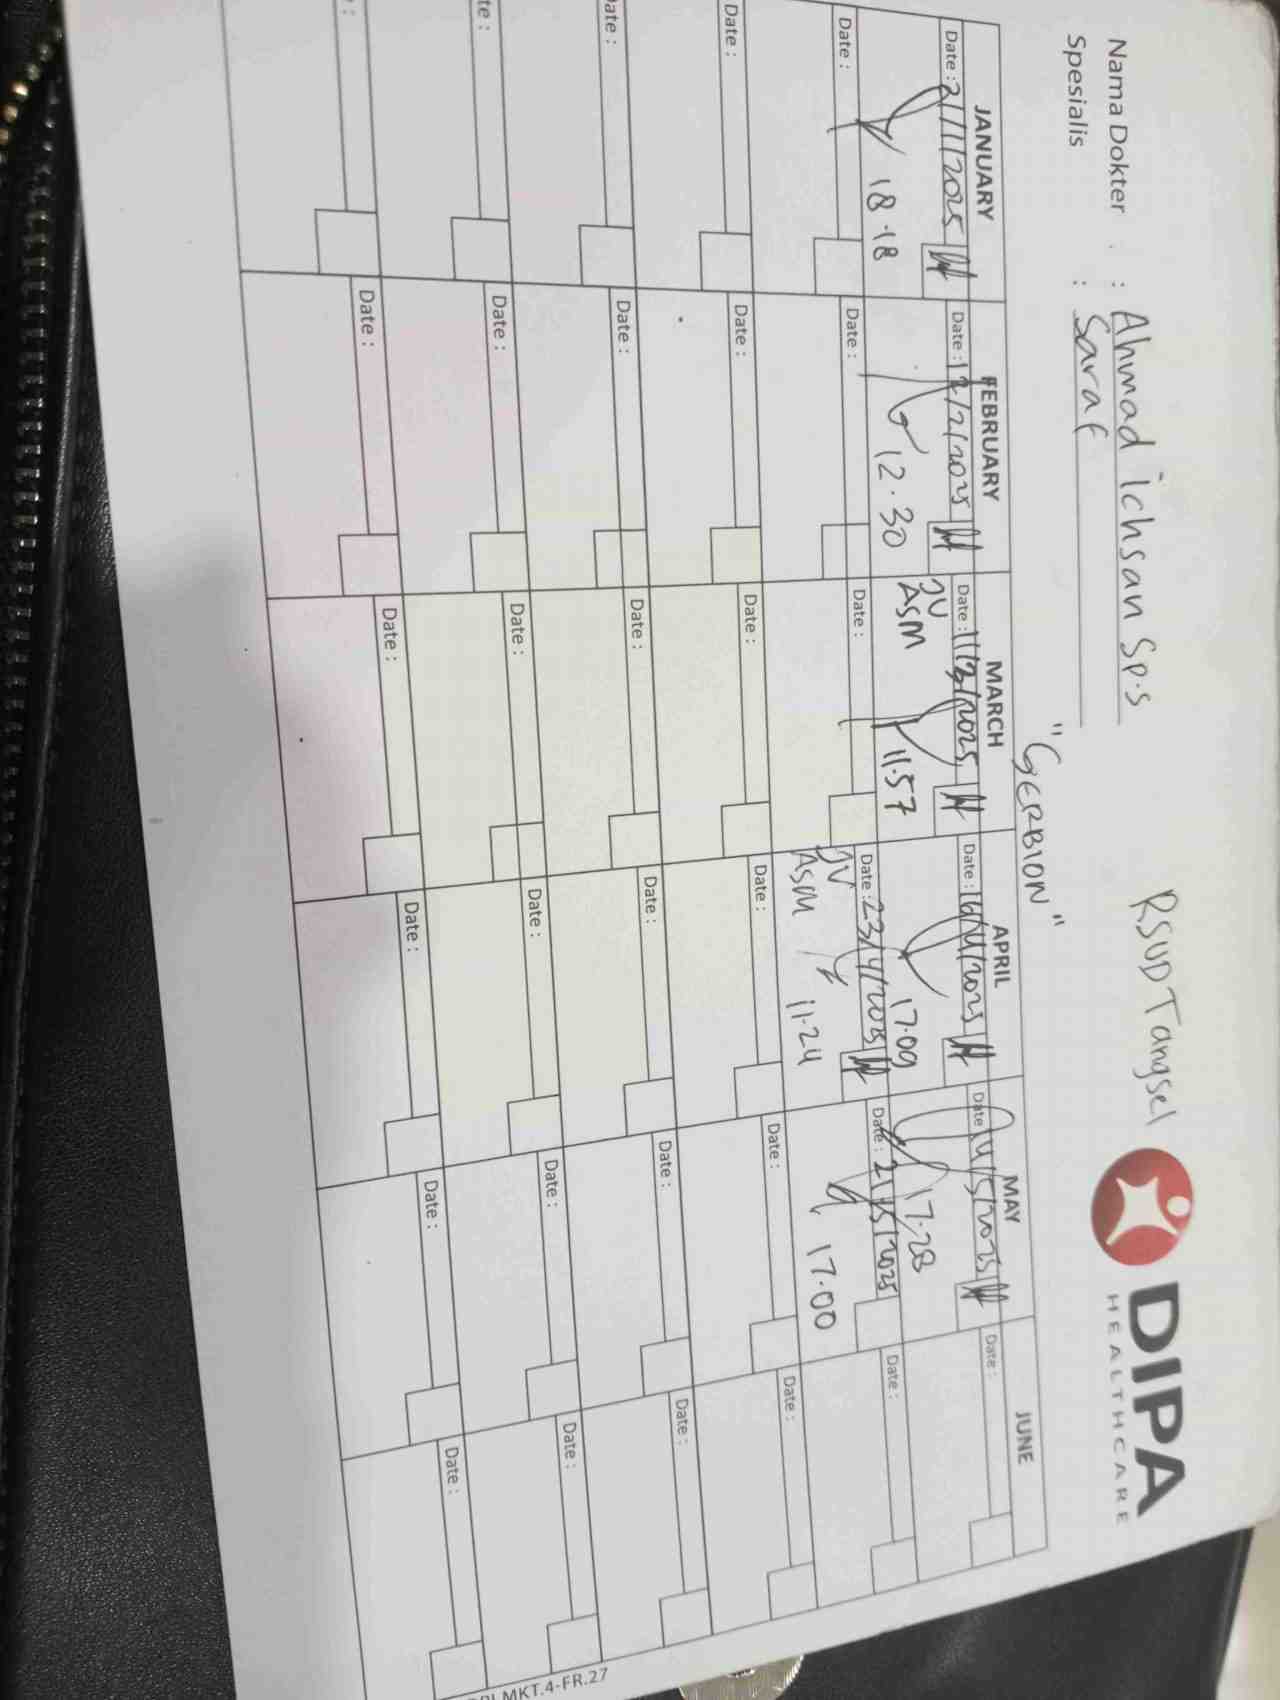 Nama Dokter : Ahmad ichsan Sp.S
RSUD Tangsel
DIPA
HEALTHCARE
Spesialis : Saraf
"GERBION"
JANUARY FEBRUARY MARCH APRIL MAY JUNE
Date : 21/1/2025 Date : 12/2/2025 Date : 11/3/2025 Date : 16/4/2025 Date : 14/5/2025 Date :
18.18 12.30 JV ASM 11.57 17.09 17.28
Date : Date : Date : Date : 23/4/2025 Date : 21/5/2025 Date :
JV ASM 11.24 17.00
Date : Date : Date : Date : Date : Date :
Date : Date : Date : Date : Date : Date :
Date : Date : Date : Date : Date :
Date : Date : Date : Date : Date :
MKT.4-FR.27